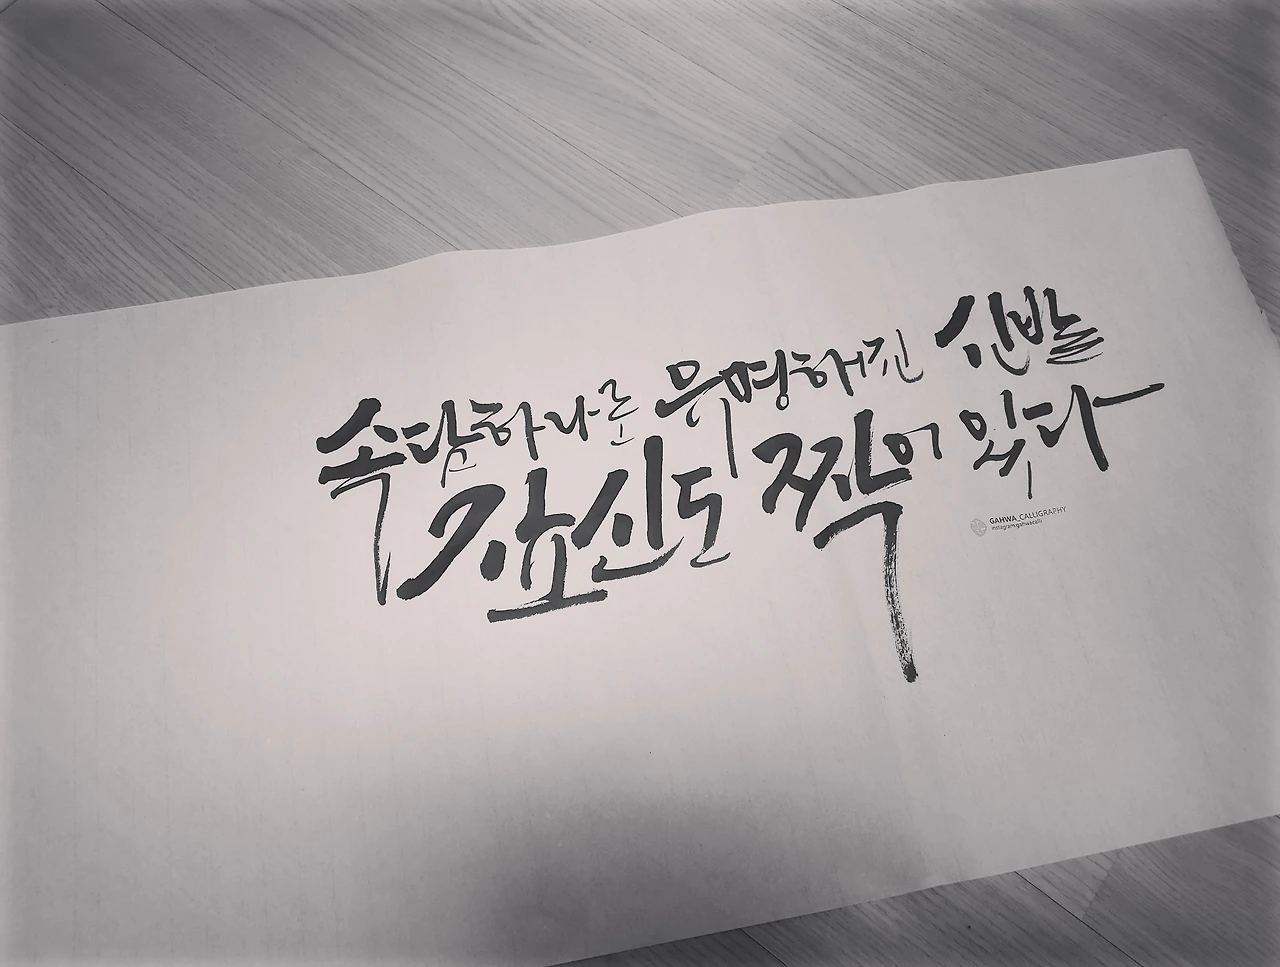 속담하나로 유명해진 신발
갚신도 짝이 있다
GAHWA_CALLIGRAPHY
instagram:gahwacalli